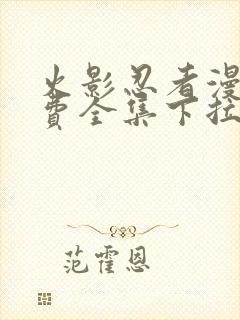 火影忍者漫
费全集下拉
范霍恩